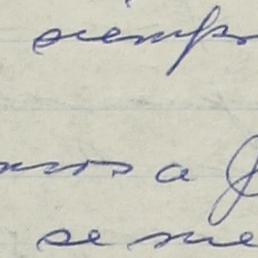 siemp
mos a
se me